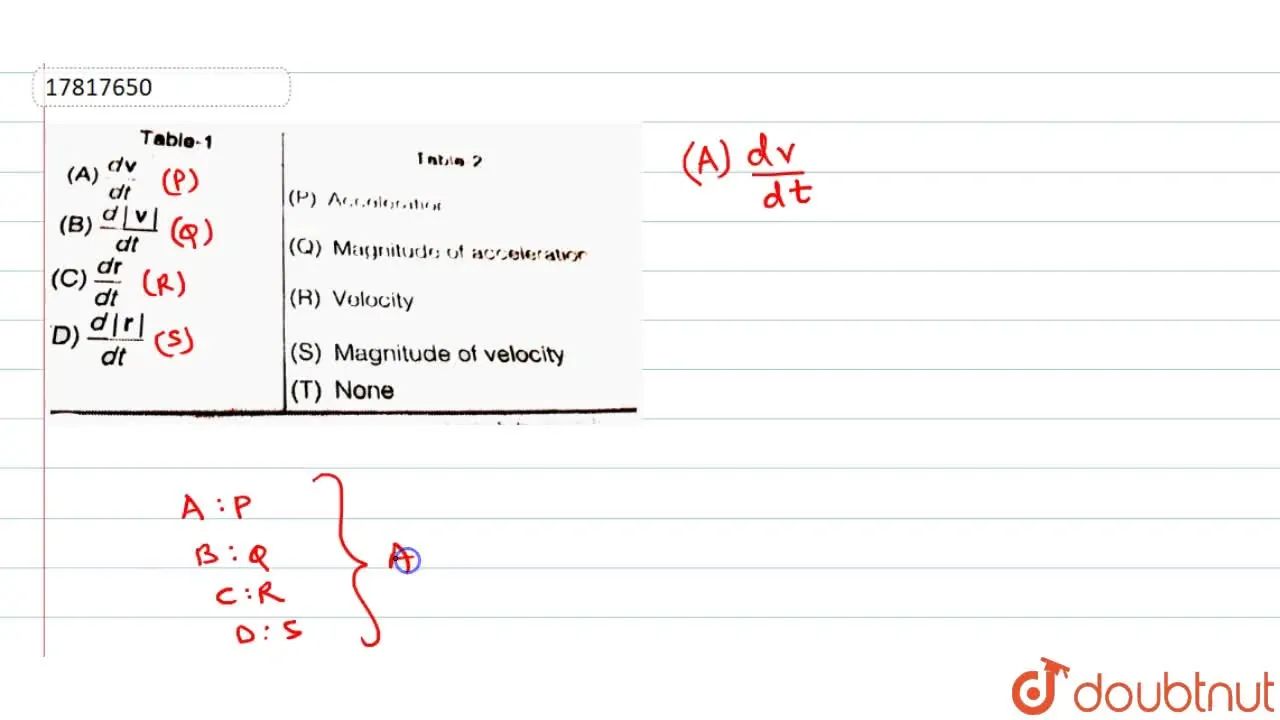 17817650
Table-1
(A) dv/dt (P)
(B) d|v|/dt (Q)
(C) dr/dt (R)
D) d|r|/dt (S)
Table-2
(P) Acceleration
(Q) Magnitude of acceleration
(R) Velocity
(S) Magnitude of velocity
(T) None
(A) dv/dt
A : P
B : Q
C : R
D : S
A
doubtnut